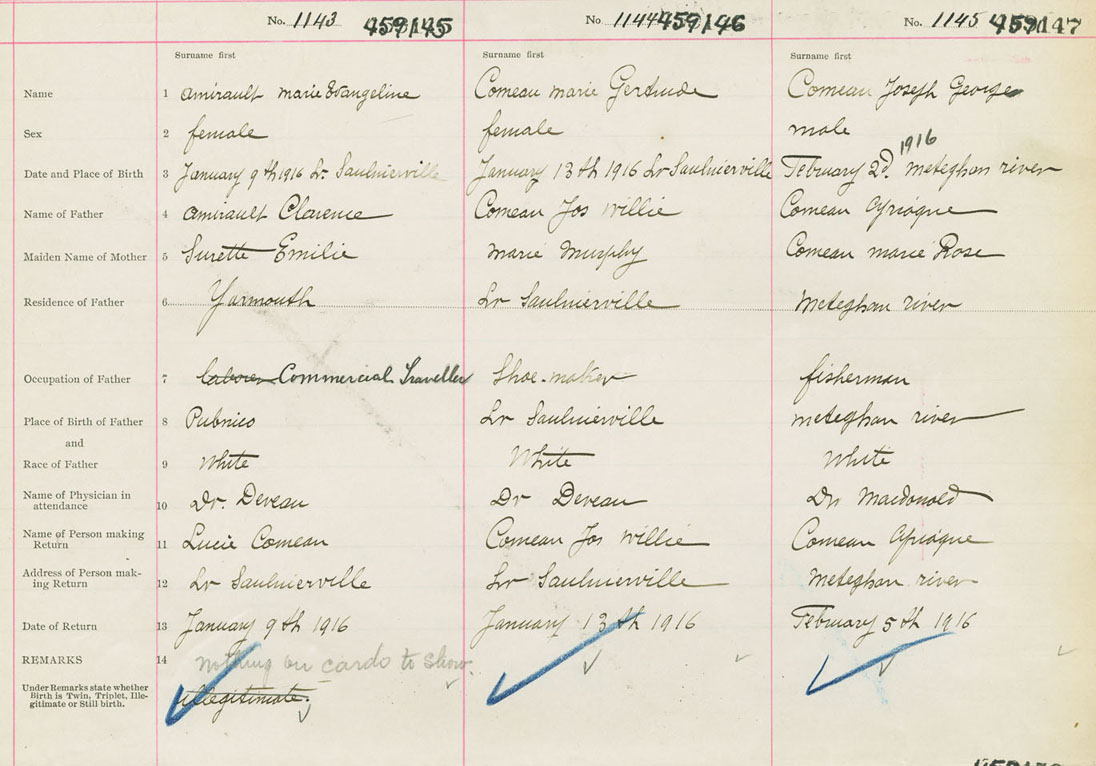 No. 1143 459145 No 1144 459146 No. 1145 459147
Surname first Surname first Surname first
Name 1 amirault marie Evangeline Comeau marie Gertrude Comeau Joseph George
Sex 2 female female male
1916
Date and Place of Birth 3 January 9th 1916 Lr Saulnierville January 13th 1916 Lr Saulnierville February 2d. meteghan river
Name of Father 4 amirault Clarence Comeau Jos Willie Comeau
Maiden Name of Mother 5 Surette Emilie marie Murphy Comeau marie Rose
Residence of Father 6 Yarmouth Lr Saulnierville Meteghan river
Occupation of Father 7 laborer Commercial Traveller Shoe-maker fisherman
Place of Birth of Father 8 Pubnico Lr Saulnierville meteghan river
and
Race of Father 9 White White White
Name of Physician in
attendance 10 Dr. Deveau Dr Deveau Dr Macdonald
Name of Person making
Return 11 Lucie Comeau Comeau Jos Willie Comeau
Address of Person mak-
ing Return 12 Lr Saulnierville Lr Saulnierville Meteghan river
Date of Return 13 January 9th 1916 January 13th 1916 February 5th 1916
REMARKS 14 nothing on cards to show
Under Remarks state whether
Birth is Twin, Triplet, Ille-
gitimate or Still birth.
illegitimate.